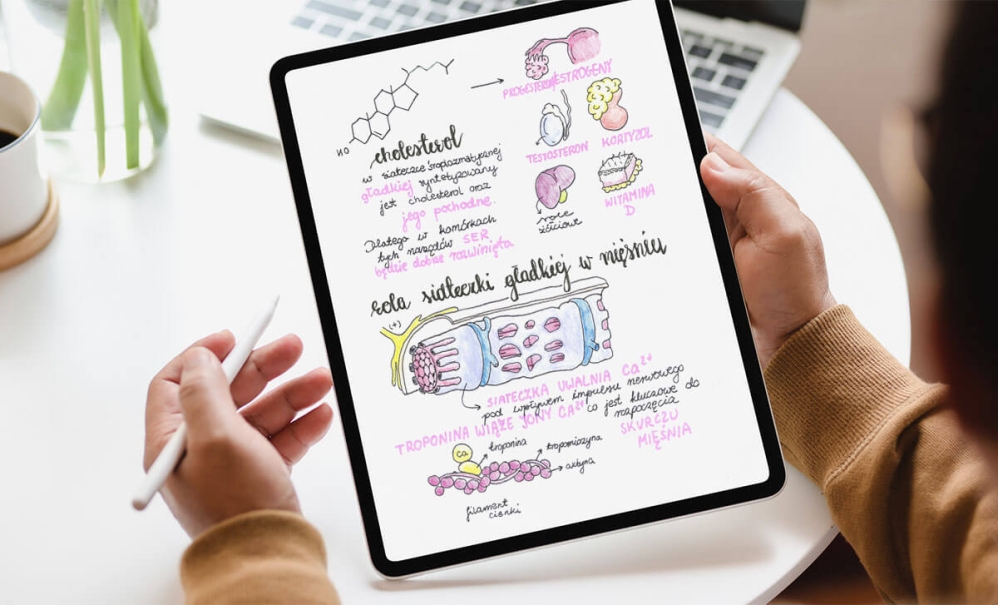 HO
cholesterol
w siateczce śródplazmatycznej
gładkiej syntetyzowany
jest cholesterol oraz
jego pochodne.
Dlatego w komórkach
tych narządów SER
będzie dobrze rozwinięta
PROGESTERON/ESTROGENY
TESTOSTERON
KORTYZOL
WITAMINA
D
żółciowe
rola siateczki gładkiej w mięśniu
(+)
SIATECZKA UWALNIA Ca²⁺
pod wpływem impulsu nerwowego
TROPONINA WIĄŻE JONY CA²⁺ co jest kluczowe do
rozpoczęcia
SKURCZU
MIĘŚNIA
Ca
troponina
tropomiozyna
aktyna
filament
cienki